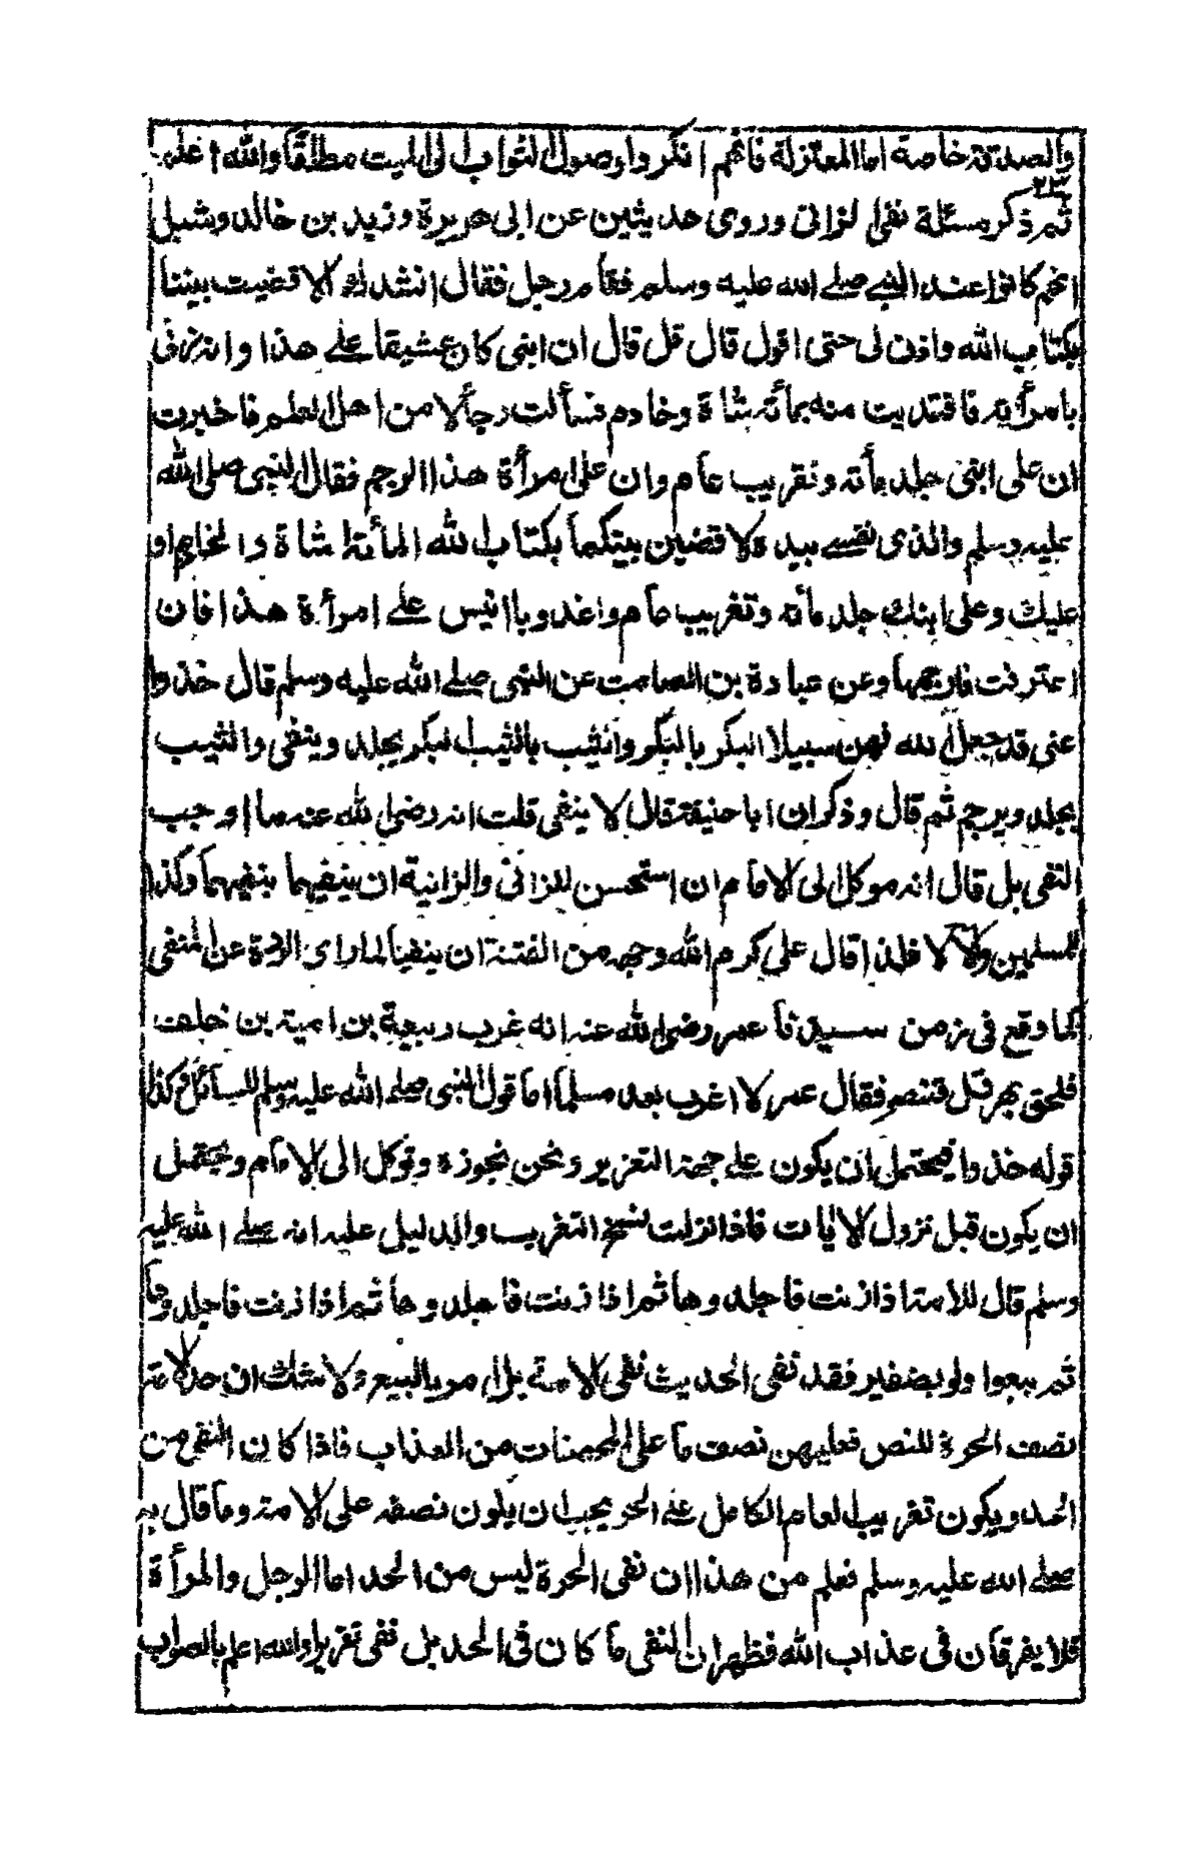 والصدقة خاصة اما المعتزلة فانهم انكروا وصول الثواب الى الميت مطلقا والله اعلم
٢٣
ثم ذكر مسئلة نفى الزانى وروى حديثين عن ابى هريرة وزيد بن خالد وشبل
انهم كانوا عند النبى صلے الله عليه وسلم فقام رجل فقال انشدك الا قضيت بيننا
بكتاب الله واذن لى حتى اقول قال قل قال ان ابنى كان عشيقا علے هذا وانه زنى
بامرأته فافتديت منه بمأته شاة وخادم فسألت رجألا من اهل العلم فاخبرت
ان على ابنى جلد مأته وتغريب عام وان على امرأة هذا الرجم فقال النبى صلى الله
عليه وسلم والذى نفسے بيده لاقضين بينكما بكتاب الله المأئة شاة والخادم
عليك وعلى ابنك جلد مأته وتغريب عام واغد ويا انيس علے امرأة هذا فان
اعترفت فارجمها وعن عبادة بن الصامت عن النبى صلے الله عليه وسلم قال خذوا
عنى قد جعل الله لهن سبيلا البكر بالبكر والثيب بالثيب البكر يجلد وينفى والثيب
يجلد ويرجم ثم قال وذكر ان ابا حنيفة قال لا ينفى قلت انه رضى الله عنه ما اوجب
النفى بل قال انه موكل الى الامام ان استحسن للزانى والزانية ان ينفيهما ينفيهما وكذا
للمسلمين والا لا فلذا قال على كرم الله وجهه من الفتنة ان ينفيا لما راى الردة عن المنفى
كما وقع فى زمن سيدنا عمر رضى الله عنه انه غرب ربيعة بن امية بن خلف
فلحق بهرقل فتنصر فقال عمر لا اغرب بعد مسلما اما قول النبى صلے الله عليه وسلم للسائل وكذا
قوله خذوا فيحتمل ان يكون علے جهة التعزير ونحن نجوزه ونوكل الى الامام ويحتمل
ان يكون قبل نزول الايات فاذا نزلت نسخ التغريب والدليل عليه انه صلے الله عليه
وسلم قال للامة اذا زنت فاجلدوها ثم اذا زنت فاجلدوها ثم اذا زنت فاجلدوها
ثم بيعوا ولو بضفير فقد نفى الحديث نفى الامة بل امر بالبيع ولا شك ان حد الامة
نصف الحرة للنص فعليهن نصف ما على المحصنات من العذاب فاذا كان النفى من
الحد ويكون تغريب العام الكامل علے الحر يجب ان يكون نصفه على الامة وما قال به
صلے الله عليه وسلم فعلم من هذا ان نفى الحرة ليس من الحد اما الرجل والمرأة
فلا يفرقان فى عذاب الله فظهر ان النفى ما كان فى الحد بل نفى تعزيرا والله اعلم بالصواب